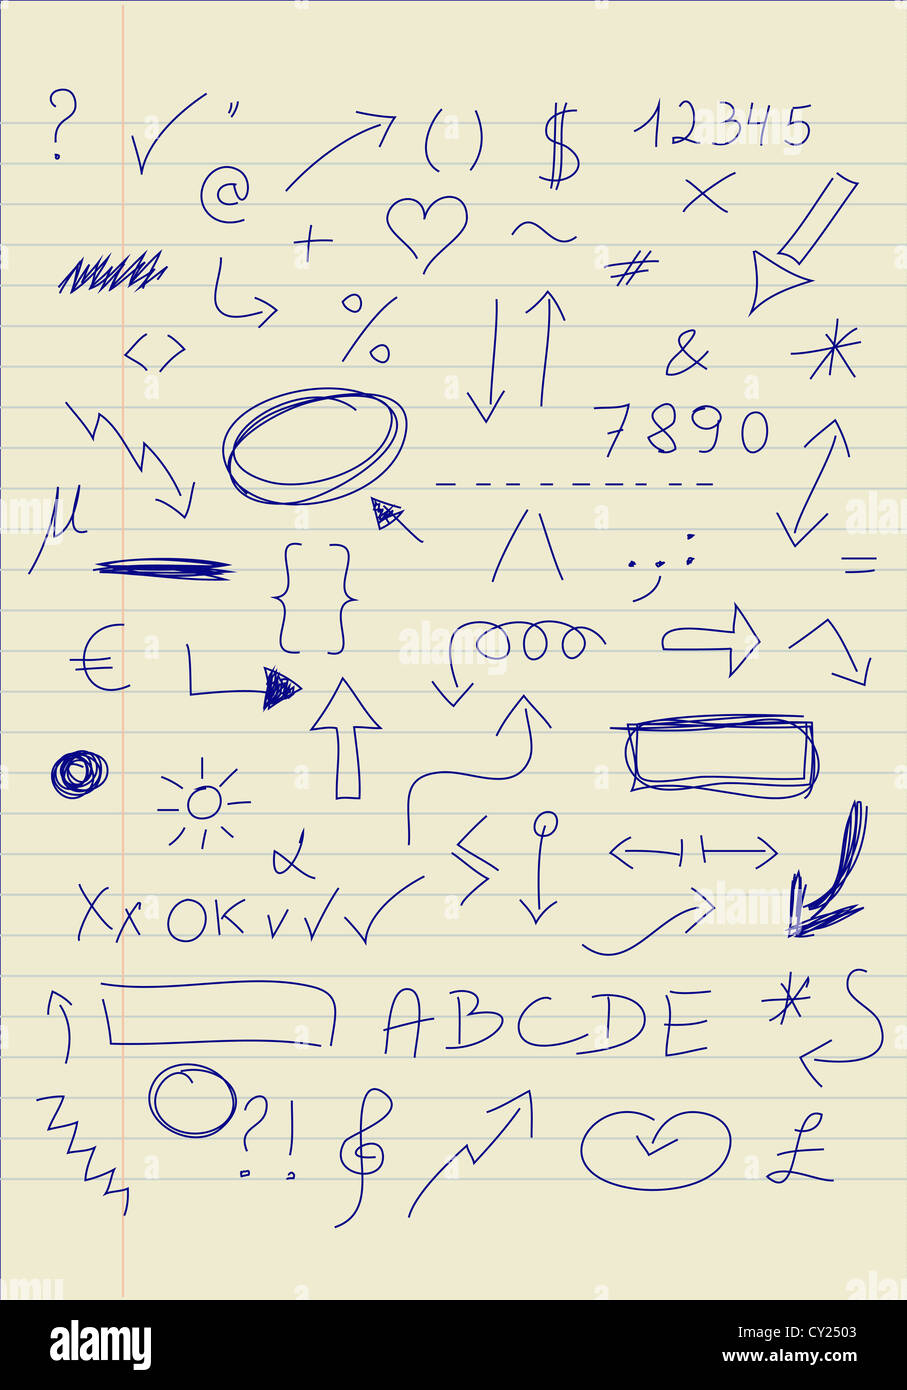 ? ✓ " ( ) $ 12345
@ + ♡ ~ ×
#
< > % & *
7890
µ
{ } /\ . , . : =
€
α
X x OK ✓ ✓ ✓
A B C D E *
? ! £
alamy
Image ID: CY2503
www.alamy.com